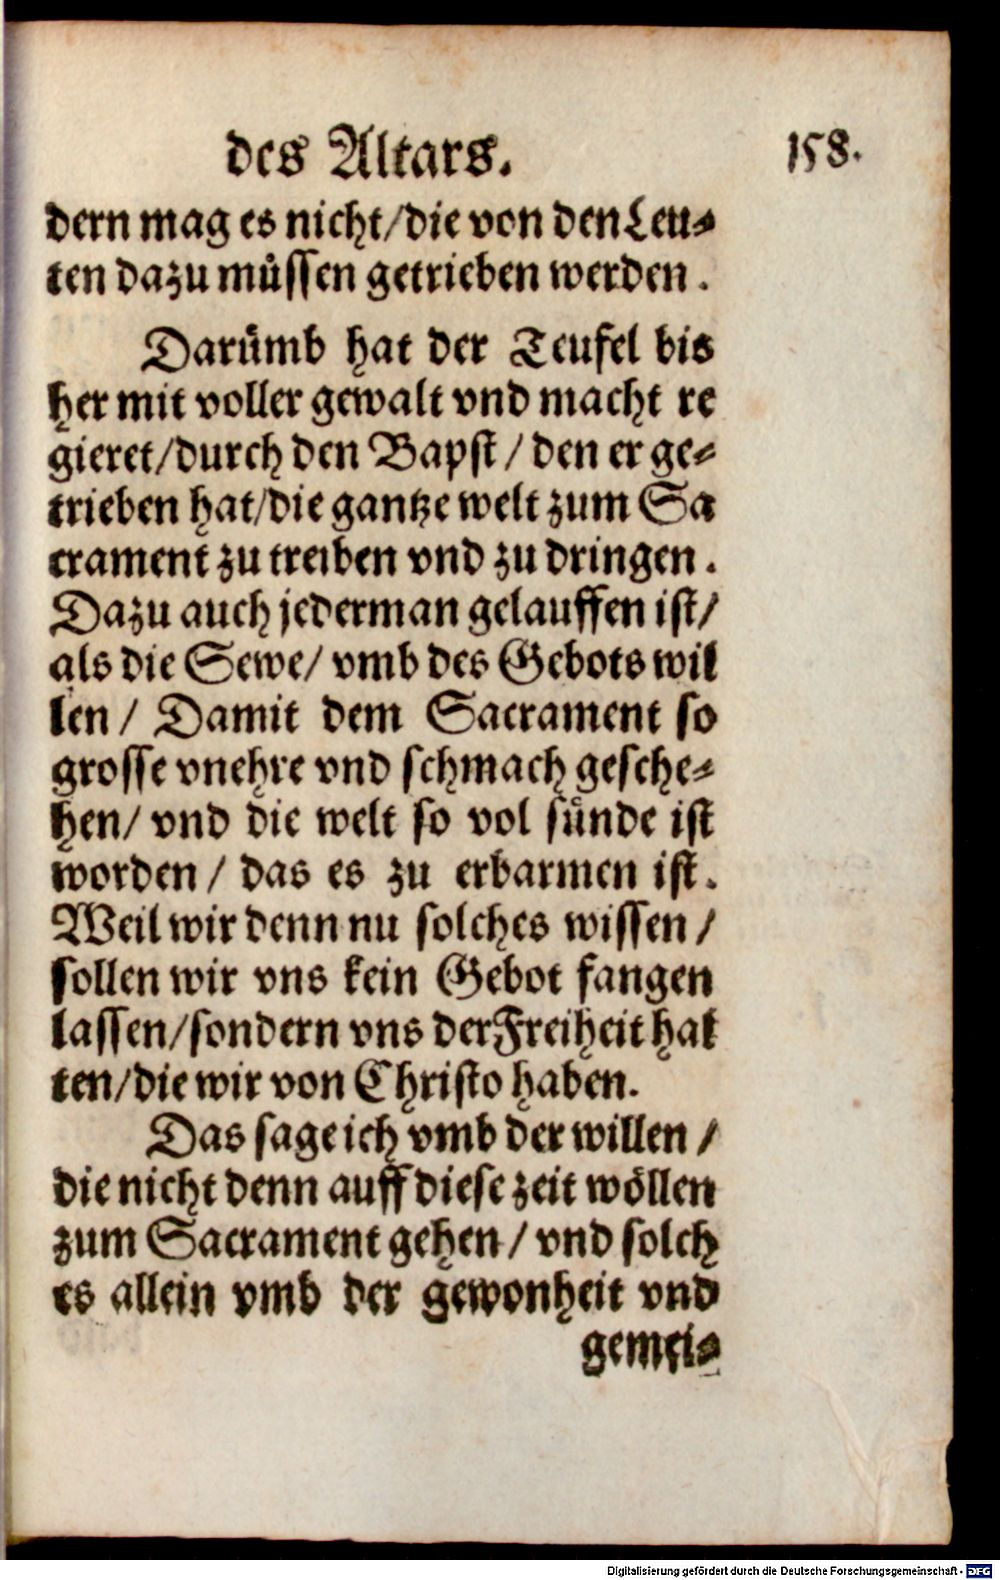 des Altars. 158.
dern mag es nicht/die von den Leu⸗
ten dazu müssen getrieben werden.
Darümb hat der Teufel bis
her mit voller gewalt vnd macht re
gieret/durch den Bapst/ den er ge⸗
trieben hat/die gantze welt zum Sa
crament zu treiben vnd zu dringen.
Dazu auch jederman gelauffen ist/
als die Sewe/ vmb des Gebots wil
len/ Damit dem Sacrament so
grosse vnehre vnd schmach gesche⸗
hen/ vnd die welt so vol sünde ist
worden/ das es zu erbarmen ist.
Weil wir denn nu solches wissen/
sollen wir vns kein Gebot fangen
lassen/sondern vns der Freiheit hal
ten/die wir von Christo haben.
Das sage ich vmb der willen/
die nicht denn auff diese zeit wöllen
zum Sacrament gehen/ vnd solch
es allein vmb der gewonheit vnd
gemei⸗
Digitalisierung gefördert durch die Deutsche Forschungsgemeinschaft - DFG